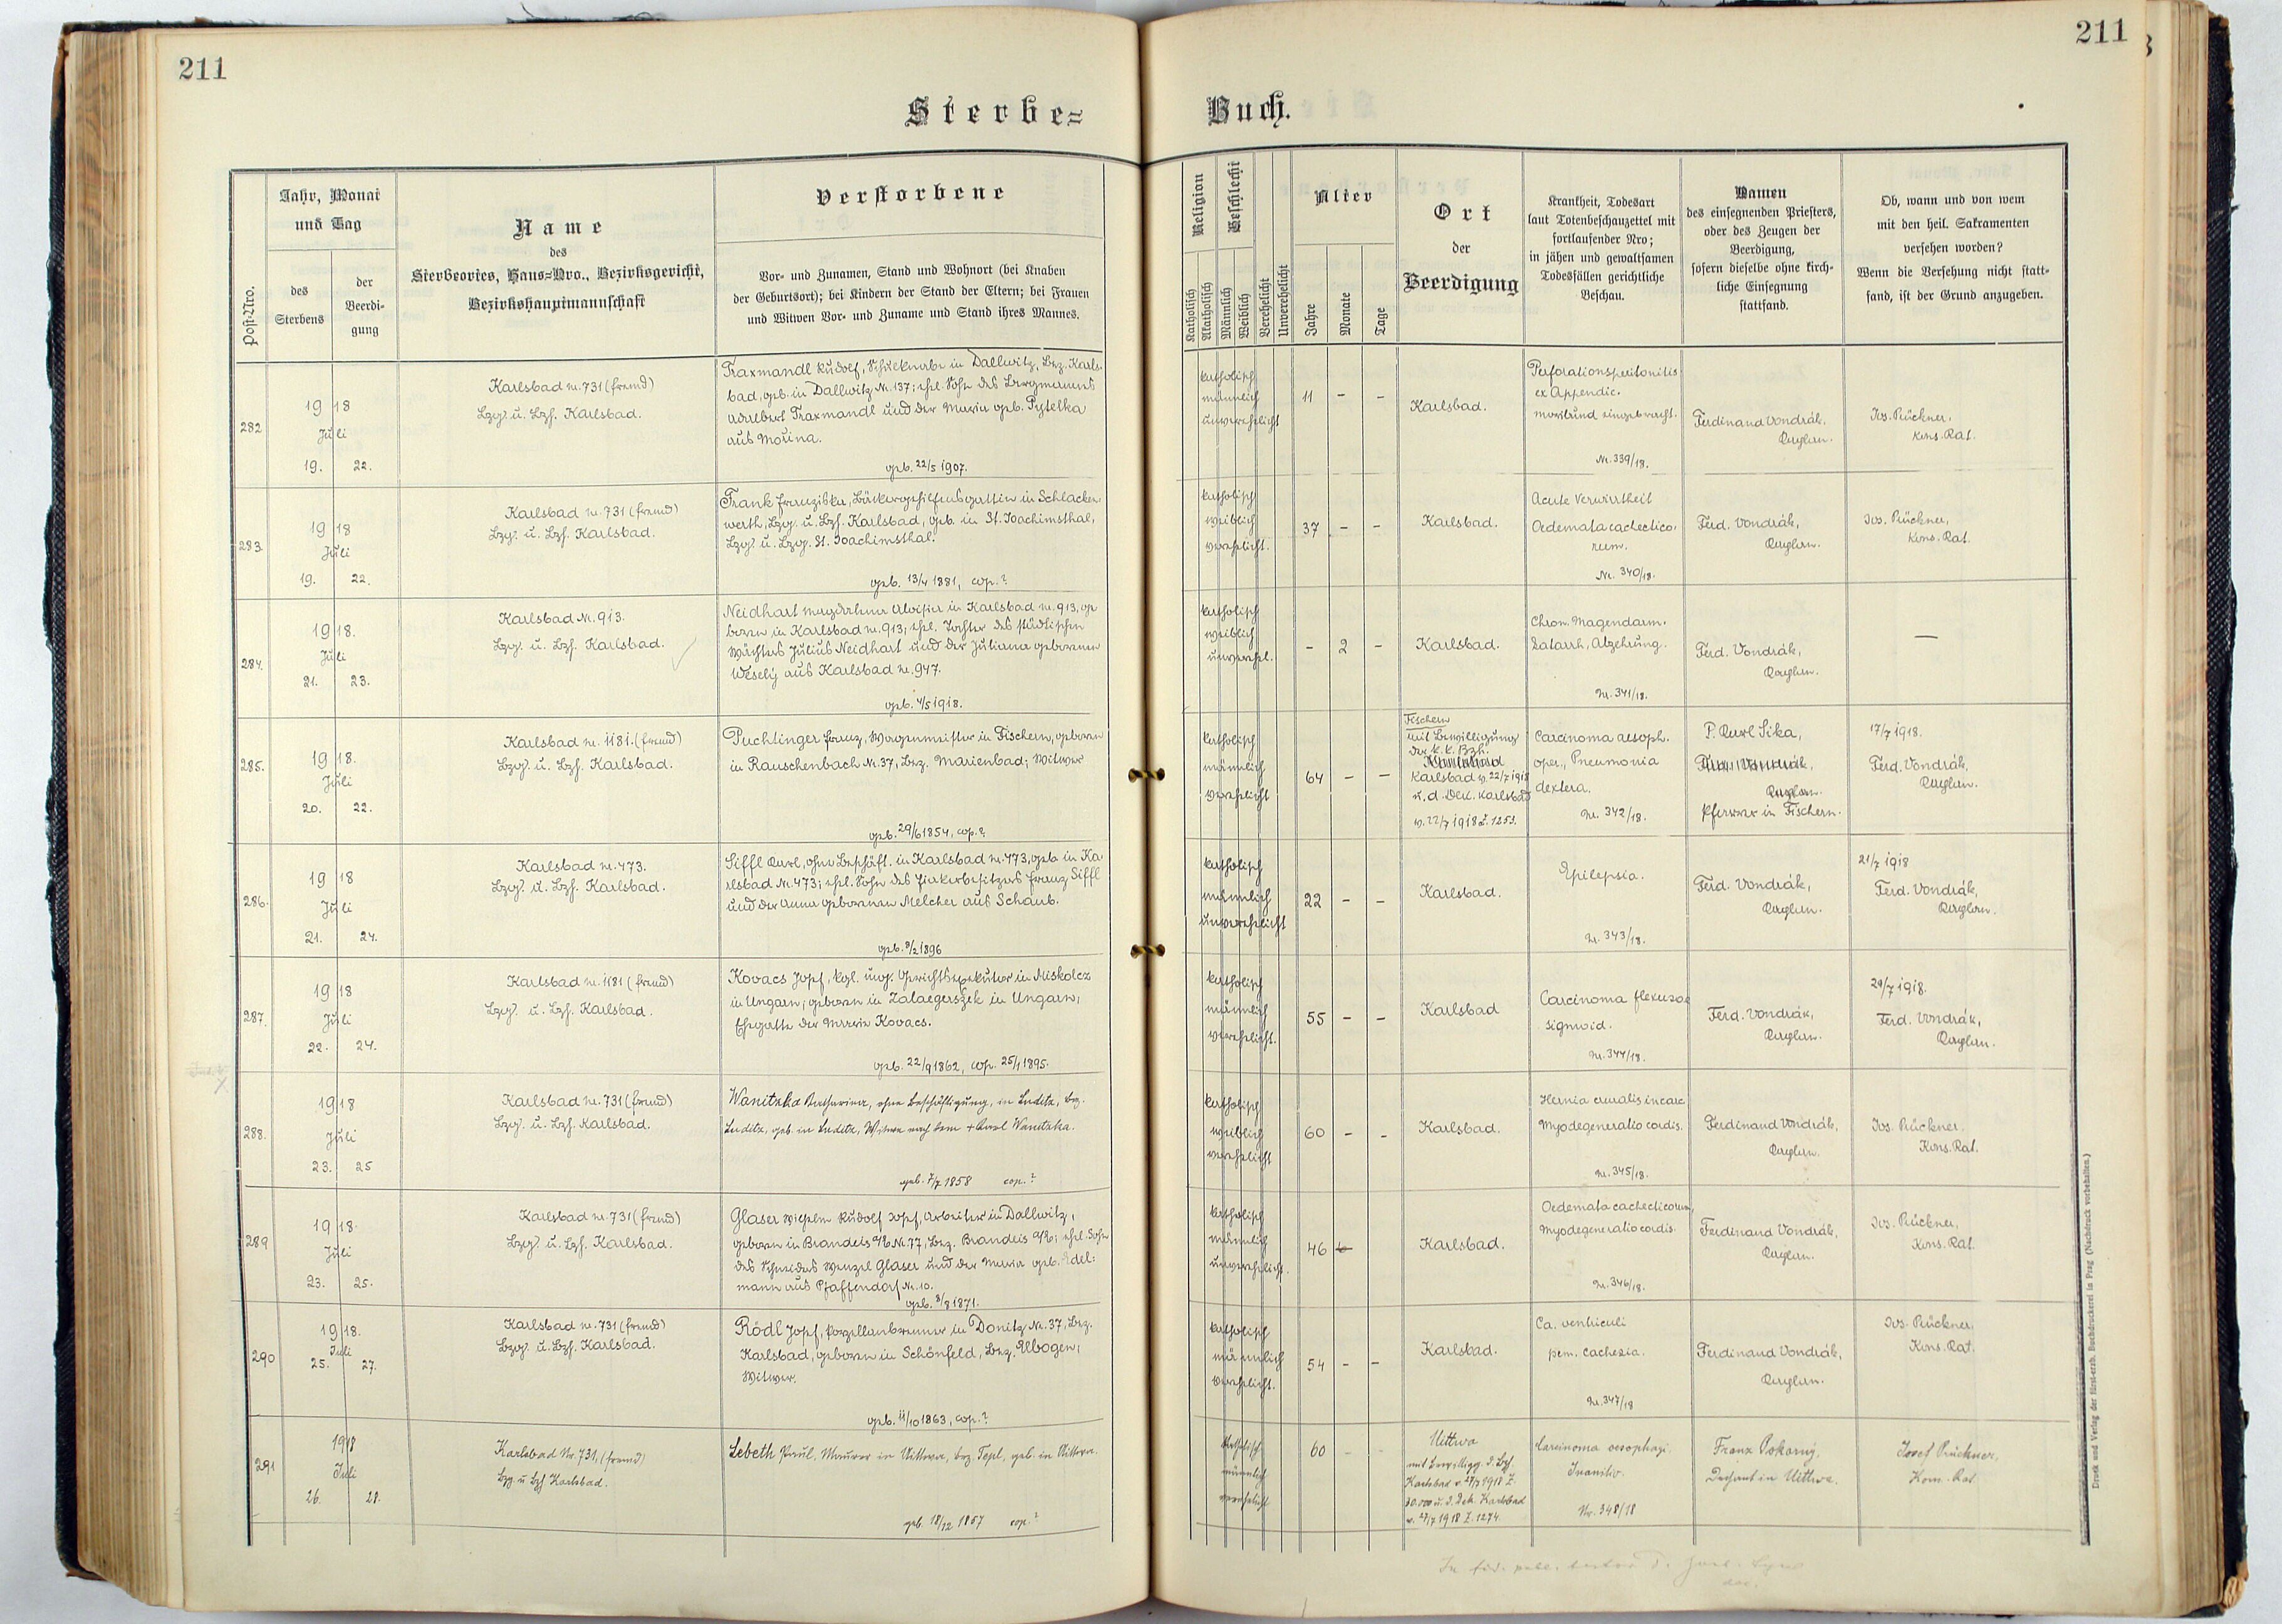 211
211
Sterbe=
Buch.
Post-Nro.
Jahr, Monat
und Tag
des
Sterbens
der
Beerdi-
gung
Name
des
Sterbeortes, Haus=Nro., Bezirksgericht,
Bezirkshauptmannschaft
Verstorbene
Vor- und Zunamen, Stand und Wohnort (bei Knaben
der Geburtsort); bei Kindern der Stand der Eltern; bei Frauen
und Witwen Vor- und Zuname und Stand ihres Mannes.
Religion
Katholisch
Akatholisch
Geschlecht
Männlich
Weiblich
Verehelicht
Unverehelicht
Alter
Jahre
Monate
Tage
Ort
der
Beerdigung
Krankheit, Todesart
laut Totenbeschauzettel mit
fortlaufender Nro;
in jähen und gewaltsamen
Todesfällen gerichtliche
Beschau.
Namen
des einsegnenden Priesters,
oder des Zeugen der
Beerdigung,
sofern dieselbe ohne kirch-
liche Einsegnung
stattfand.
Ob, wann und von wem
mit den heil. Sakramenten
versehen worden?
Wenn die Versehung nicht statt-
fand, ist der Grund anzugeben.
282
1918
Juli
19. 22.
Karlsbad nr. 731 (fremd)
Bzg. u. Bzh. Karlsbad.
Traxmandl Rudolf, Schulknabe in Dallwitz, Bez. Karls-
bad, geb. in Dallwitz Nr. 137; ehel. Sohn des Bergmannes
Adalbert Traxmandl und der Maria geb. Pytelka
aus Mořina.
geb. 22/5 1907.
katholisch
männlich
unverehelicht
11 - -
Karlsbad.
Perforationsperitonitis
ex Appendic.
moribund eingebracht.
Nr. 339/18.
Ferdinand Vondrák,
Kaplan.
Jos. Rückner,
Kons. Rat.
283.
1918
Juli
19. 22.
Karlsbad nr. 731 (fremd)
Bzg. u. Bzh. Karlsbad.
Frank Franziska, Bäckergehilfensgattin in Schlacken-
werth, Bzg. u. Bzh. Karlsbad, geb. in St. Joachimsthal,
Bzg. u. Bzg. St. Joachimsthal.
geb. 13/4 1881, cop.?
katholisch
weiblich
verehelicht.
37 - -
Karlsbad.
Acute Verwirrtheit
Oedemata cachectico-
rum.
Nr. 340/18.
Ferd. Vondrák,
Kaplan.
Jos. Rückner,
Kons. Rat.
284.
1918.
Juli
21. 23.
Karlsbad Nr. 913.
Bzg. u. Bzh. Karlsbad.
Neidhart Magdalena Aloisia in Karlsbad nr. 913, ge-
boren in Karlsbad nr. 913; ehel. Tochter des städtischen
Wächters Julius Neidhart und der Juliana geborenen
Wesely aus Karlsbad nr. 947.
geb. 4/5 1918.
katholisch
weiblich
unverehel.
- 2 -
Karlsbad.
Chron. Magendarm-
katarrh, Abzehrung.
Nr. 341/18.
Ferd. Vondrák,
Kaplan.
—
285.
1918.
Juli
20. 22.
Karlsbad nr. 1181. (fremd)
Bzg. u. Bzh. Karlsbad.
Puchtinger Franz, Wagenmeister in Fischern, geboren
in Rauschenbach Nr. 37, Bez. Marienbad; Witwer
geb. 29/6 1854, cop.?
katholisch
männlich
verehelicht
64 - -
Fischern
mit Bewilligung
der k. k. Bzh.
Karlsbad v. 22/7 1918
u. d. Dek. Karlsbad
v. 22/7 1918 Z. 1253.
Carcinoma aesoph.
oper., Pneumonia
dextera.
Nr. 342/18.
P. Karl Sika,
Pfarrer in Fischern.
17/7 1918.
Ferd. Vondrák,
Kaplan.
286.
1918
Juli
21. 24.
Karlsbad nr. 473.
Bzg. u. Bzh. Karlsbad.
Siffl Karl, ohne Beschäft. in Karlsbad nr. 473, geb. in Ka-
rlsbad Nr. 473; ehel. Sohn des Fiakerbesitzers Franz Siffl
und der Anna geborenen Melcher aus Schaub.
geb. 8/2 1896
katholisch
männlich
unverehelicht
22 - -
Karlsbad.
Epilepsia.
Nr. 343/18.
Ferd. Vondrák,
Kaplan.
21/7 1918
Ferd. Vondrák,
Kaplan.
287.
1918
Juli
22. 24.
Karlsbad nr. 1181 (fremd)
Bzg. u. Bzh. Karlsbad.
Kovacs Josef, kgl. ung. Gerichtsexekutor in Miskolcz
in Ungarn; geboren in Zalaegerszek in Ungarn,
Ehegatte der Maria Kovacs.
geb. 22/9 1862, cop. 25/1 1895.
katholisch
männlich
verehelicht.
55 - -
Karlsbad
Carcinoma flexurae
sigmoid.
Nr. 344/18.
Ferd. Vondrák,
Kaplan.
20/7 1918.
Ferd. Vondrák,
Kaplan.
288.
1918
Juli
23. 25
Karlsbad nr. 731 (fremd)
Bzg. u. Bzh. Karlsbad.
Wanitzka Katharina, ohne Beschäftigung, in Luditz, Bez.
Luditz, geb. in Luditz, Witwe nach dem + Karl Wanitzka.
geb. 7/7 1858 cop.?
katholisch
weiblich
verehelicht
60 - -
Karlsbad.
Hernia cruralis incarc
Myodegeneratio cordis.
Nr. 345/18.
Ferdinand Vondrák,
Kaplan.
Jos. Rückner,
Kons. Rat.
289
1918.
Juli
23. 25.
Karlsbad nr. 731 (fremd)
Bzg. u. Bzh. Karlsbad.
Glaser Wilhelm Rudolf Josef, Arbeiter in Dallwitz,
geboren in Brandeis a/E Nr. 77, Bez. Brandeis a/E; ehel. Sohn
des Schneiders Wenzel Glaser und der Maria geb. Edel=
mann aus Pfaffendorf Nr. 10.
geb. 8/8 1871.
katholisch
männlich
unverehelicht.
46
Karlsbad.
Oedemata cachecticorum,
Myodegeneratio cordis.
Nr. 346/18.
Ferdinand Vondrák,
Kaplan.
Jos. Rückner,
Kons. Rat.
290
1918.
Juli
25. 27.
Karlsbad nr. 731 (fremd)
Bzg. u. Bzh. Karlsbad.
Rödl Josef, Porzellanbrenner in Donitz Nr. 37, Bez.
Karlsbad, geboren in Schönfeld, Bez. Elbogen,
Witwer.
geb. 11/10 1863, cop.?
katholisch
männlich
verehelicht.
54 - -
Karlsbad.
Ca. ventriculi
pem. cachexia.
Nr. 347/18
Ferdinand Vondrák,
Kaplan.
Jos. Rückner,
Kons. Rat.
291
1918
Juli
26. 28.
Karlsbad Nr. 731, (fremd)
Bzg. u Bzh Karlsbad.
Lebeth Paul, Maurer in Uittwa, bez. Tepl, geb. in Uittwa.
geb. 18/12 1857 cop.?
katholisch
männlich
verehelicht
60 - -
Uittwa
mit Bewilligg. d. Bzh.
Karlsbad v. 27/7 1918 Z
30.000 u. d. Dek. Karlsbad
v. 27/7 1918 Z. 1274.
Carcinoma oesophagi
Inanitio.
Nr. 348/18
Franz Pokorny,
Dechant in Uittwa.
Josef Rückner,
Kons. Rat
Druck und Verlag der fürst-erzb. Buchdruckerei in Prag (Nachdruck vorbehalten.)